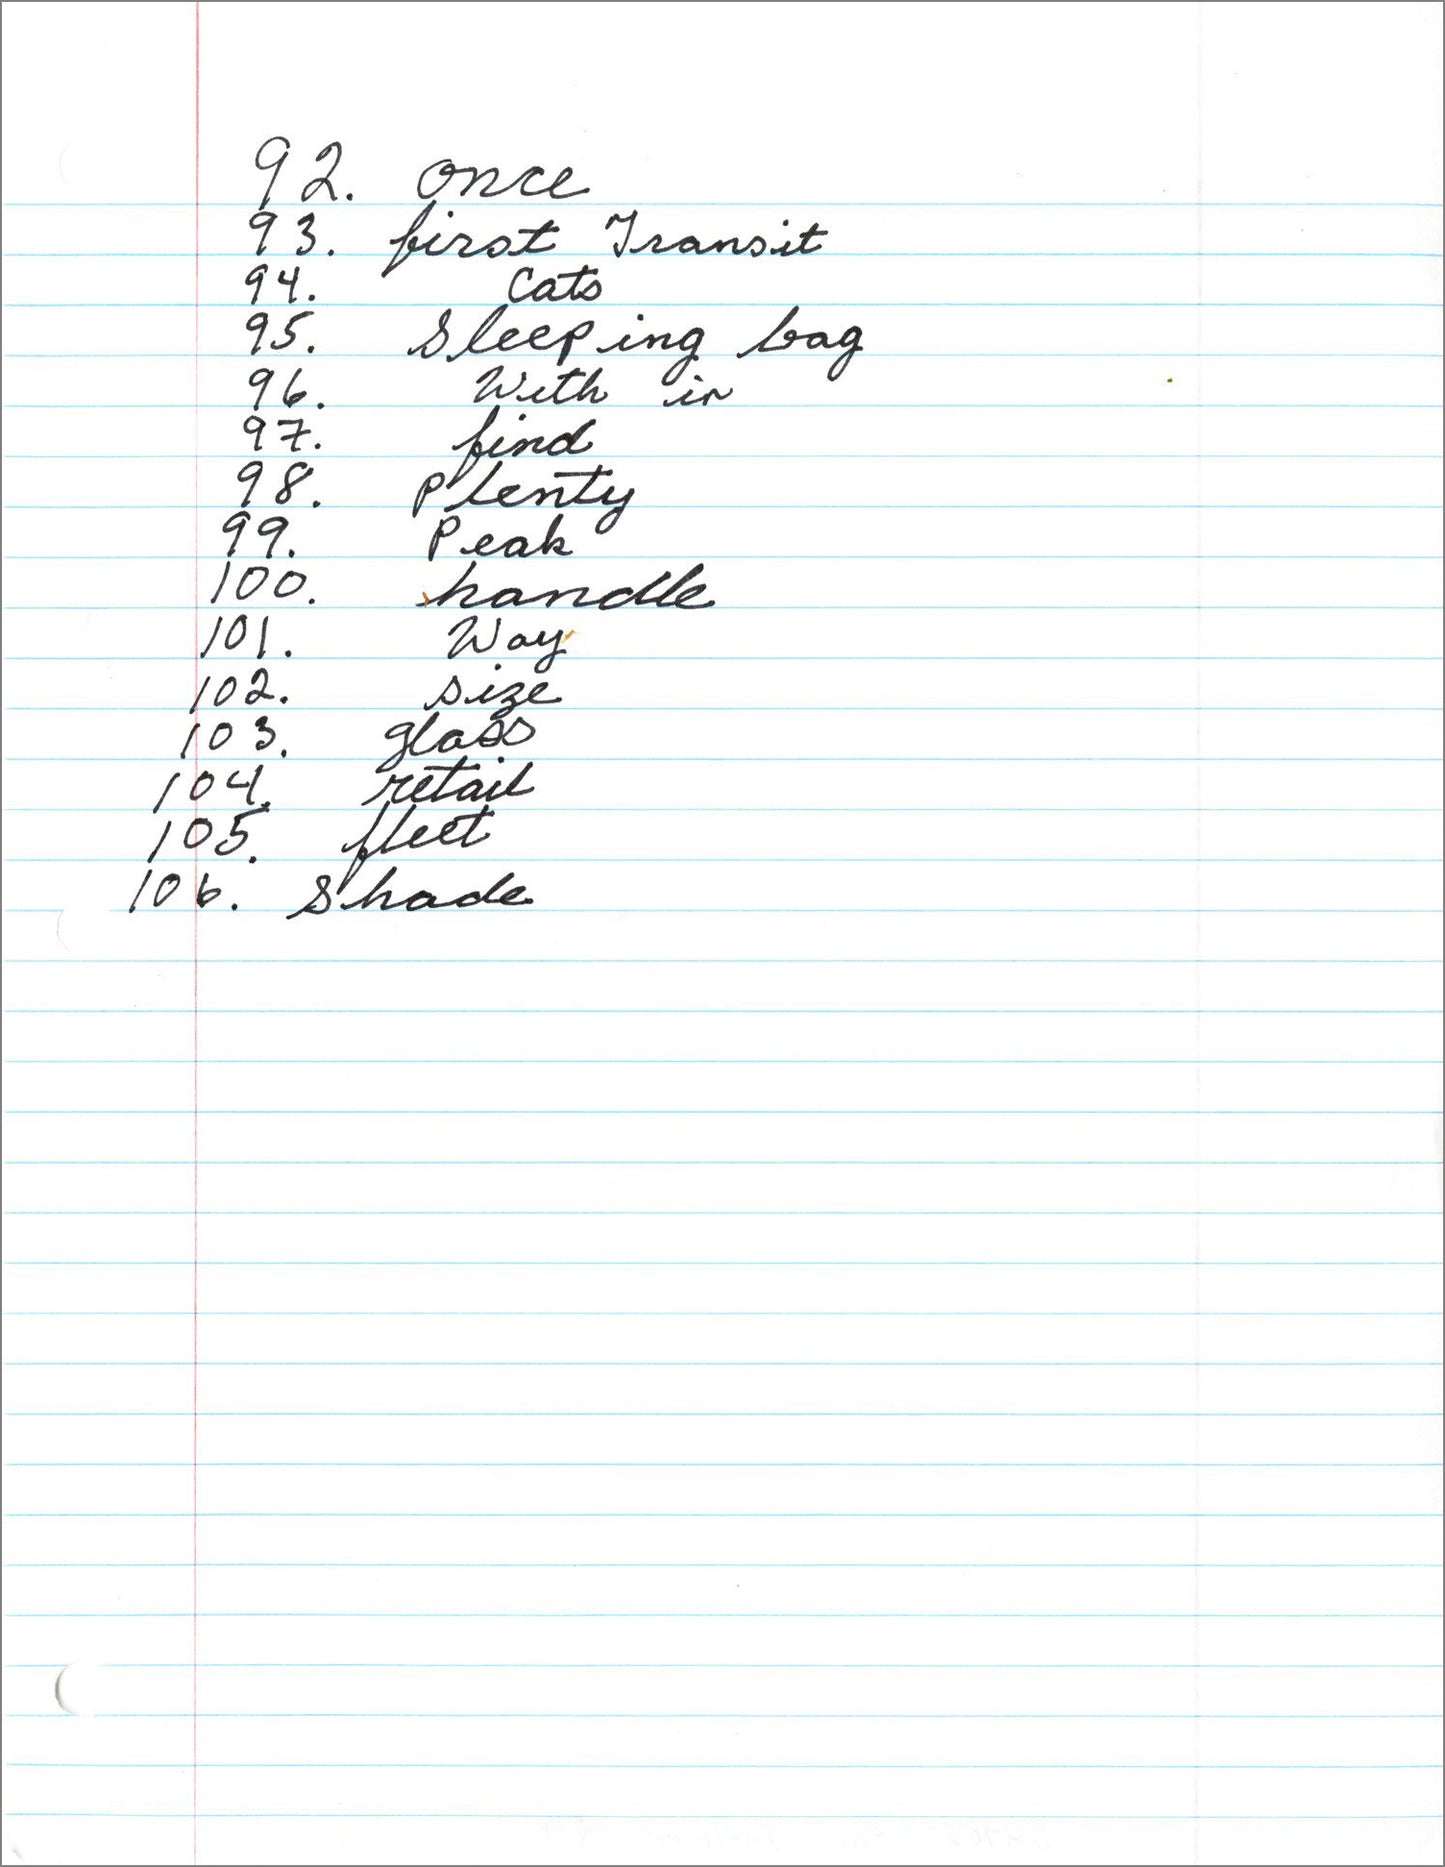 92. once
93. first Transit
94. Cats
95. Sleeping bag
96. With in
97. find
98. Plenty
99. Peak
100. handle
101. Way
102. size
103. glass
104. retail
105. fleet
106. Shade